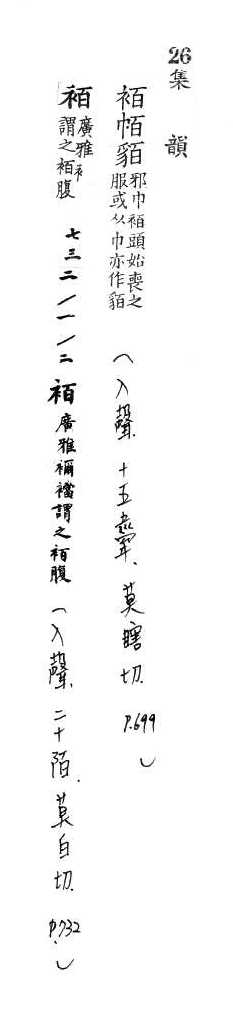 26集韻
袹帞貊邪巾袹頭始喪之服或从巾亦作貊（入聲．十五舝．莫瞎切．P.699）
袹廣雅謂之袹腹 七三二/一/二 袹廣雅襧襠謂之袹腹（入聲．二十陌．莫白切．P.732．）